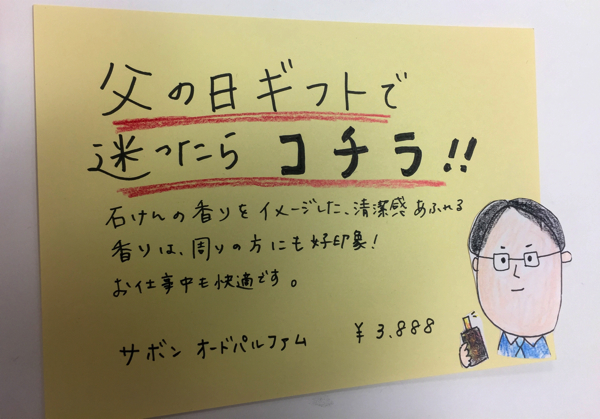 父の日ギフトで
迷ったら コチラ!!
石けんの香りをイメージした、清潔感あふれる
香りは、周りの方にも好印象!
お仕事中も快適です。
サボン オードパルファム ¥3,888